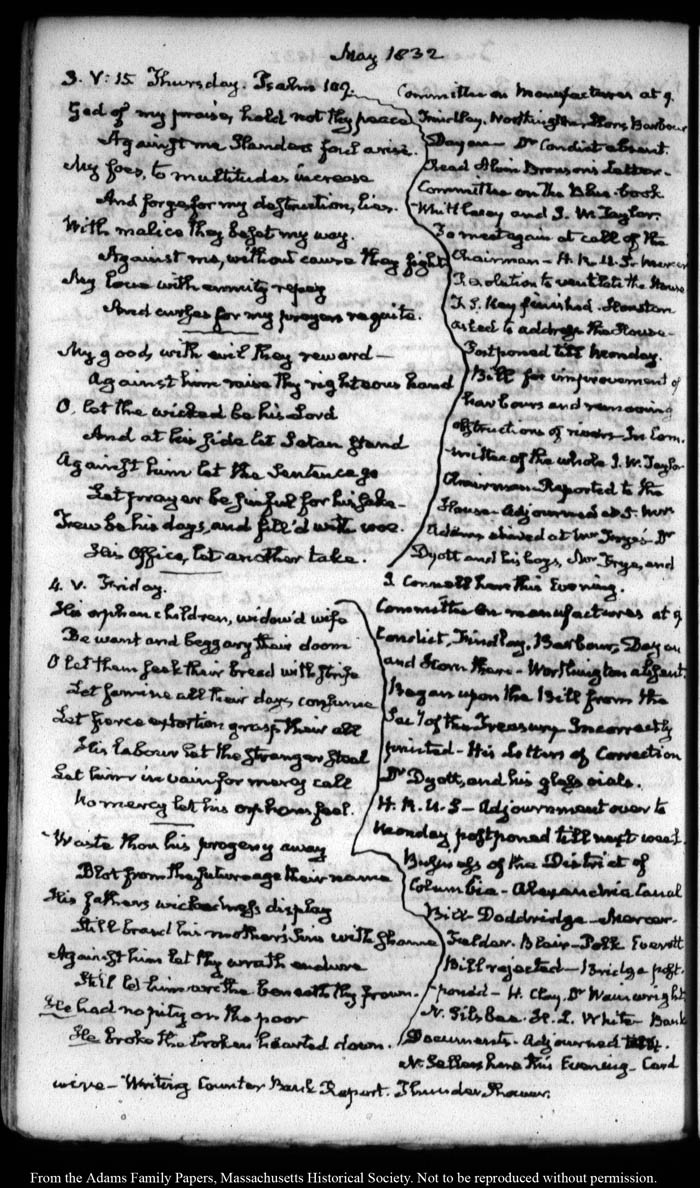 May 1832
3. V: 15 Thursday. Psalms 109.
God of my praise, hold not thy peace
Against me Slanders foul arise.
My foes, to multitudes increase
And forge for my destruction, lies.
With malice they beset my way.
Against me, without cause they fight
My love with enmity repay
And curses for my prayers requite.
My good, with evil they reward—
Against him raise thy righteous hand
O, let the wicked be his Lord
And at his side let Satan stand
Against him let the Sentence go
Let prayer be sinful for his sake—
Few be his days, and fill'd with woe.
His Office, let another take.
Committee on Manufactures at 9.
Findlay, Worthington, Horn, Barbour
Dayan— Dr Condict absent.
Read Alvin Bronson's Letter—
Committee on the Blue-book
Whittlesey and J. W. Taylor.
To meet again at call of the
Chairman— H. R. U.S. Mercer
Resolution to ventilate the House
F. S. Key finished. Houston
asked to address the House—
Postponed till Monday.
Bill for improvement of
harbours and removing
obstructions of rivers— In Com-
mittee of the whole J. W. Taylor
Chairman— Reported to the
House— Adjourned at 5. Mrs
Adams dined at Mrs Frye's— Dr
Dyott and his boys, Mrs Frye, and
I. Connell here this Evening.
4. V. Friday.
His orphan children, widow'd wife
Be want and beggary their doom
O let them seek their bread with strife
Let famine all their days consume
Let fierce extortion grasp their all
His labour let the Stranger steal
Let him in vain for mercy call
No mercy let his orphans feel.
Waste thou his progeny away
Blot from the future age their name
His fathers wickedness display
Still brand his mother's sins with shame
Against him let thy wrath endure
Still let him writhe beneath thy frown.
He had no pity on the poor
He broke the broken hearted down.
Committee on manufactures at 9
Condict, Findlay, Barbour, Dayan
and Horn there— Worthington absent.
Began upon the Bill from the
Secy of the Treasury— Incorrectly
printed— His Letters of Correction
Dr Dyott, and his glass vials.
H. R. U.S— Adjournment over to
Monday postponed till next week.
Business of the District of
Columbia— Alexandria Canal
Bill— Doddridge— Mercer—
Felder. Blair— Polk Everett
Bill rejected— Bridge post-
poned— H. Clay, Dr Wainwright
N. Silsbee. H. L. White— Bank
Documents— Adjourned
N. Sellers here this Evening— Card
wire— Writing Counter Bank Report. Thunder Shower.
From the Adams Family Papers, Massachusetts Historical Society. Not to be reproduced without permission.